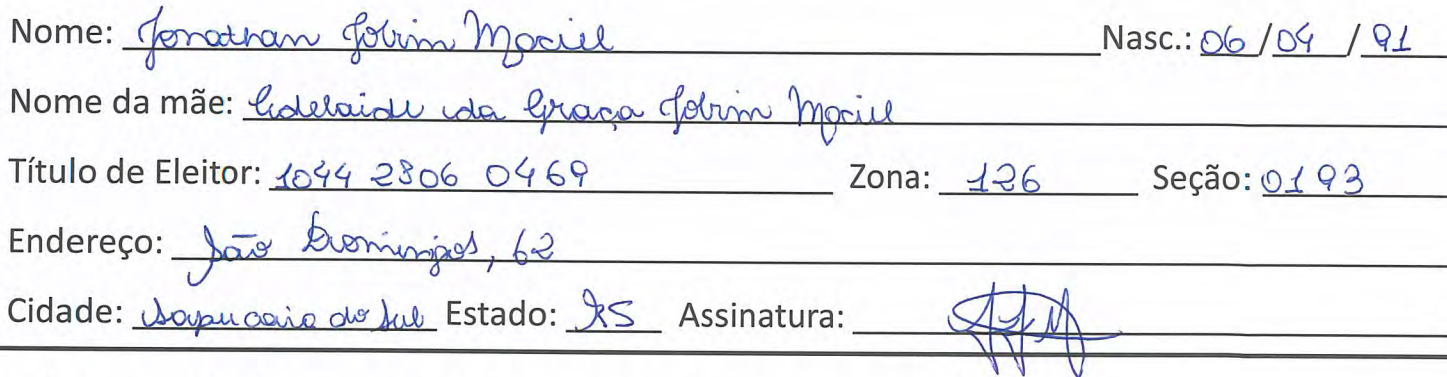 Nome: Jonathan Jobim Maciel Nasc.: 06/04/91
Nome da mãe: Adelaide da Graça Jobim Maciel
Título de Eleitor: 1044 2306 0469 Zona: 126 Seção: 0193
Endereço: São Domingos, 62
Cidade: Sapucaia do Sul Estado: RS Assinatura: